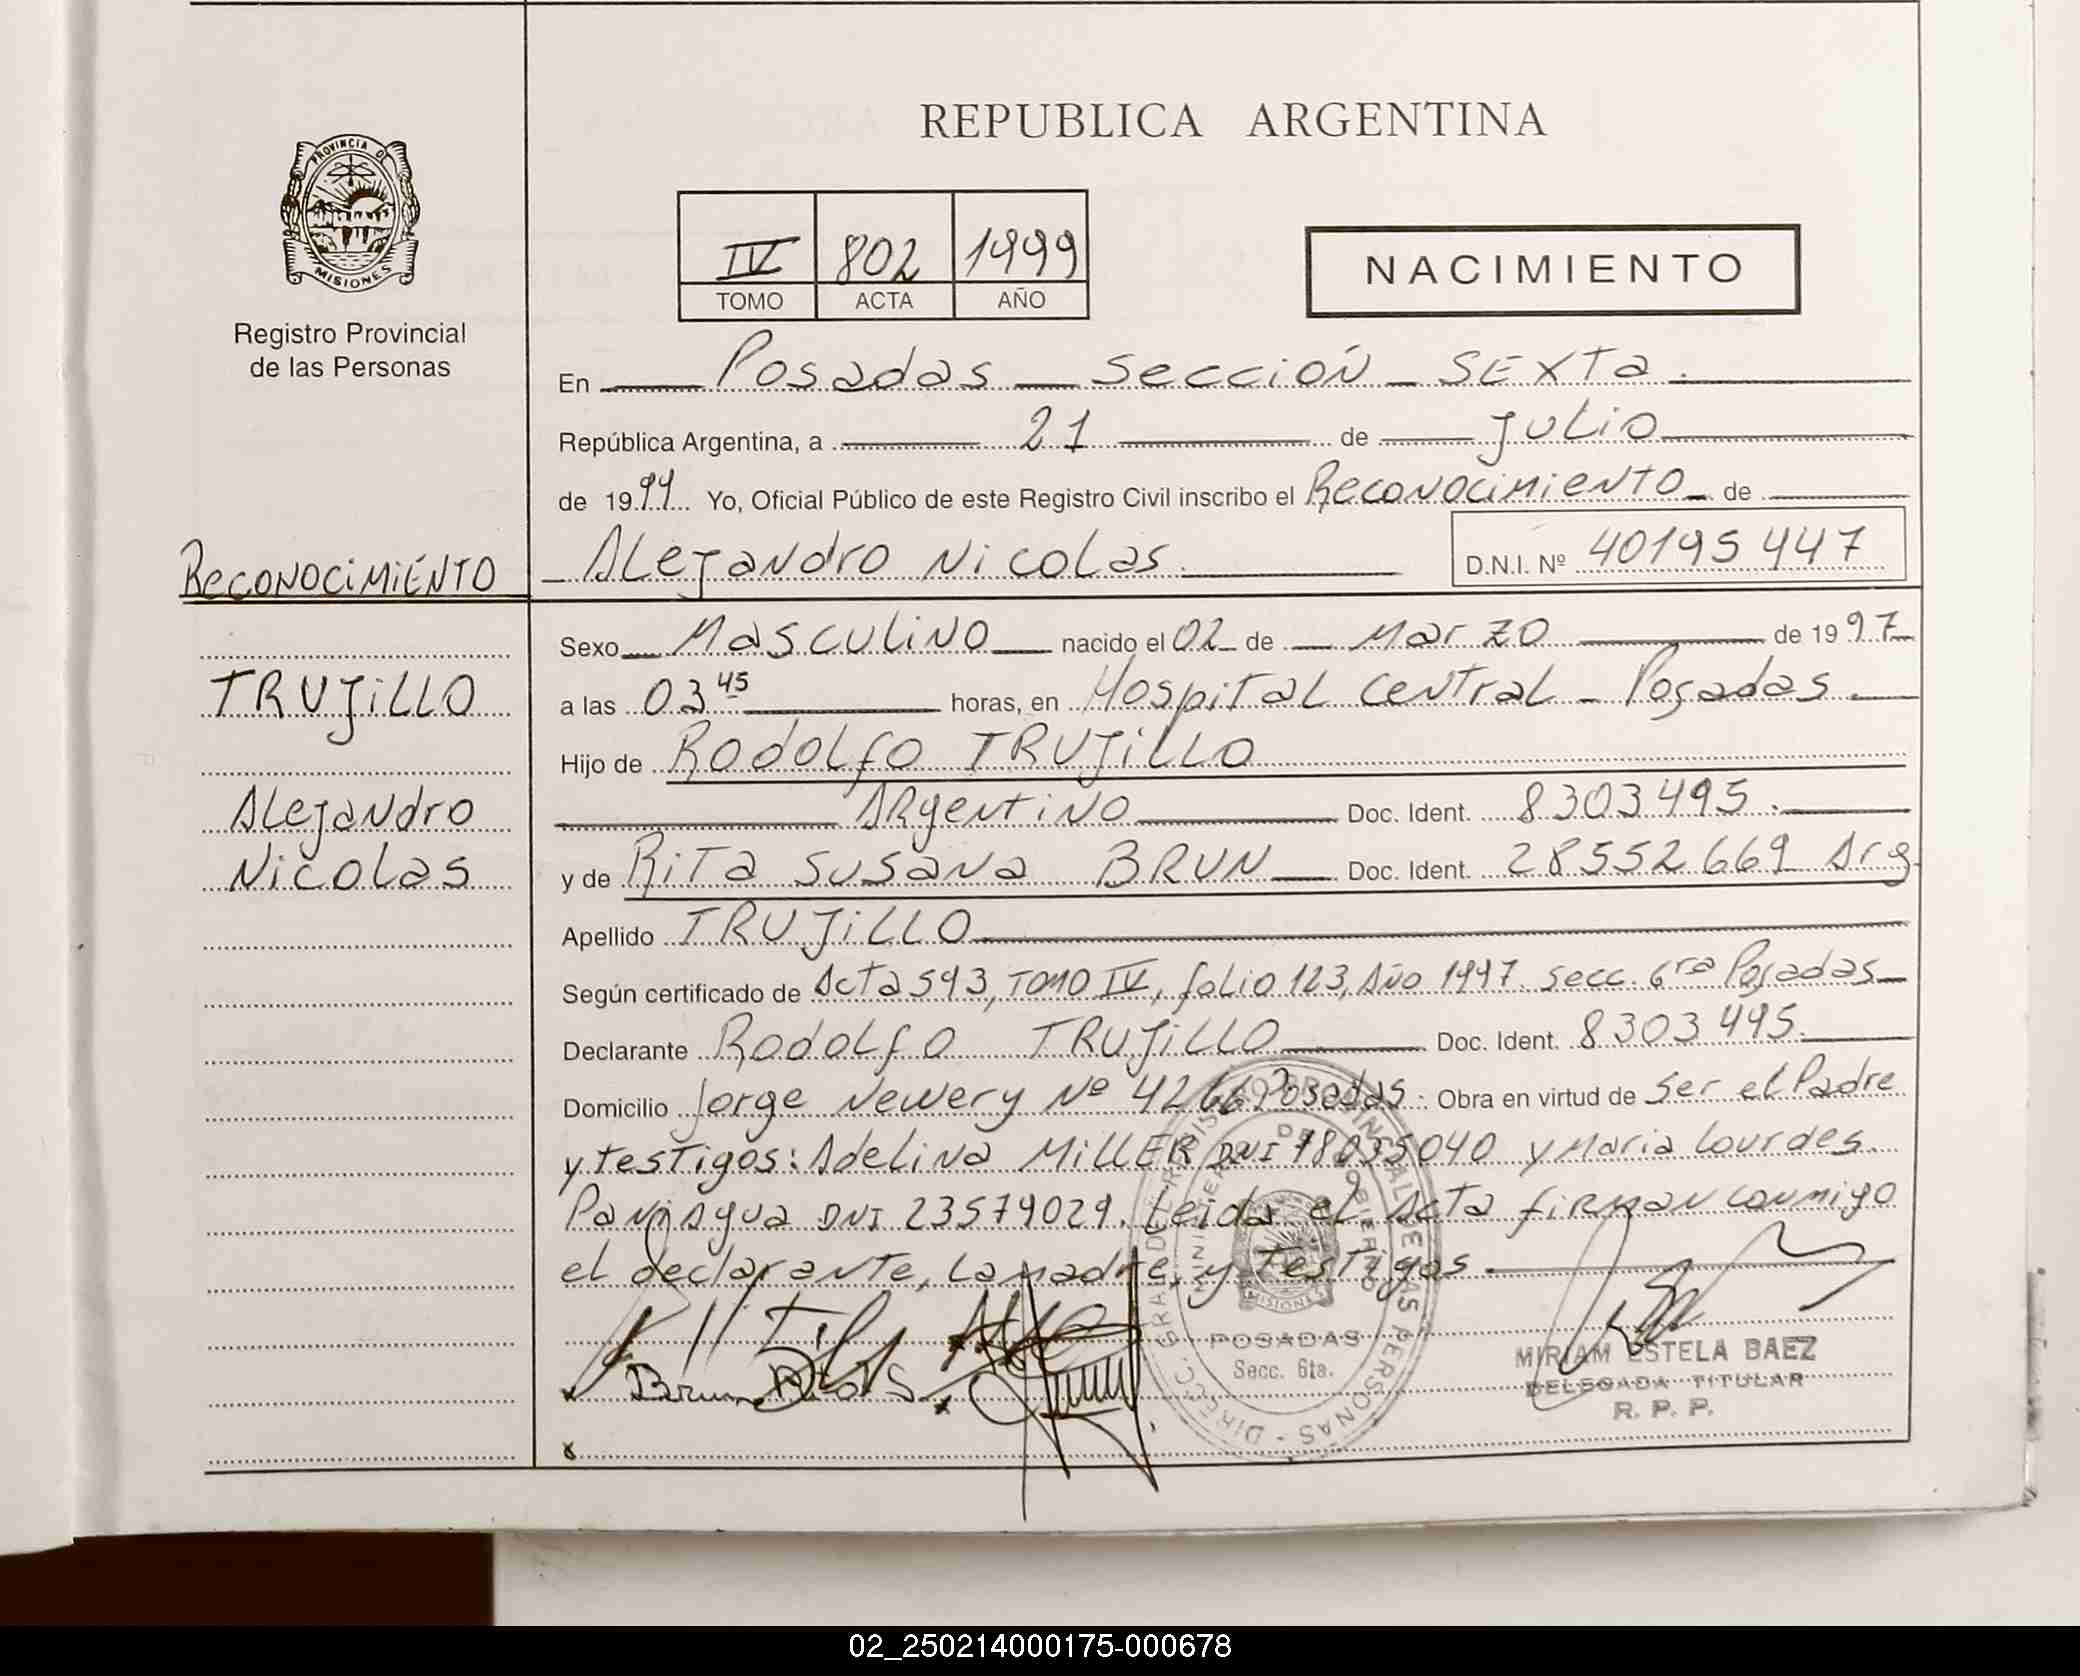 REPUBLICA ARGENTINA
PROVINCIA DE
MISIONES
Registro Provincial
de las Personas
IV 802 1999
TOMO ACTA AÑO
NACIMIENTO
En Posadas - Sección - SEXTA.
República Argentina, a 21 de Julio
de 1999 Yo, Oficial Público de este Registro Civil inscribo el Reconocimiento de
Reconocimiento
Alejandro Nicolas D.N.I. Nº 40195447
Sexo Masculino nacido el 02 de Marzo de 1997
TRUJILLO
a las 03 45 horas, en Hospital Central - Posadas.
Hijo de Rodolfo TRUJILLO
Alejandro
Argentino Doc. Ident. 8303495.
Nicolas
y de Rita Susana BRUN Doc. Ident. 28552669 Arg.
Apellido TRUJILLO
Según certificado de Acta 593, TOMO IV, folio 123, Año 1997. Secc. 6ra Posadas
Declarante Rodolfo TRUJILLO Doc. Ident. 8303495.
Domicilio Jorge Newery Nº 4266 Posadas. Obra en virtud de Ser el Padre
y testigos: Adelina MILLER DNI 18035040 y Maria Lourdes
Paniagua DNI 23579029. Leida el Acta firman conmigo
el declarante, la madre, y Testigos
Brun Rita S.
DIREC. GRAL. DEL REGISTRO PROVINCIAL DE LAS PERSONAS
MINISTERIO DE GOBIERNO
MISIONES
POSADAS
Secc. 6ta.
MIRIAM ESTELA BAEZ
DELEGADA TITULAR
R. P. P.
02_250214000175-000678